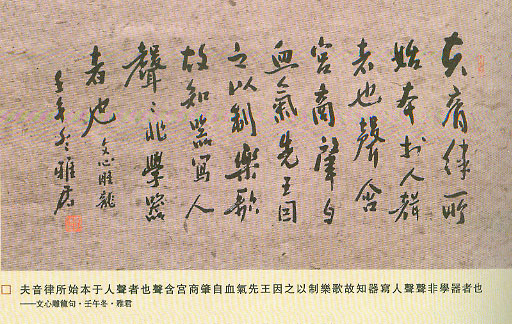 夫音律所
始本于人聲
者也聲含
宮商肇自
血氣先王因
之以制樂歌
故知器寫人
聲〻非學器
者也 文心雕龍
壬午冬雅君
夫音律所始本于人聲者也聲含宮商肇自血氣先王因之以制樂歌故知器寫人聲聲非學器者也
——文心雕龍句·壬午冬·雅君